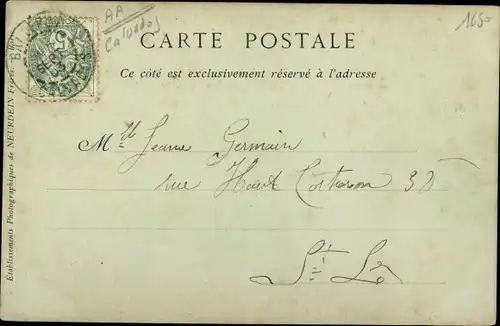 AA
Calvados
1650
CARTE POSTALE
Ce côté est exclusivement réservé à l'adresse
Mlle Jeanne Germain
rue Haut 37
St Lô
Etablissements Photographiques de NEURDEIN Frères